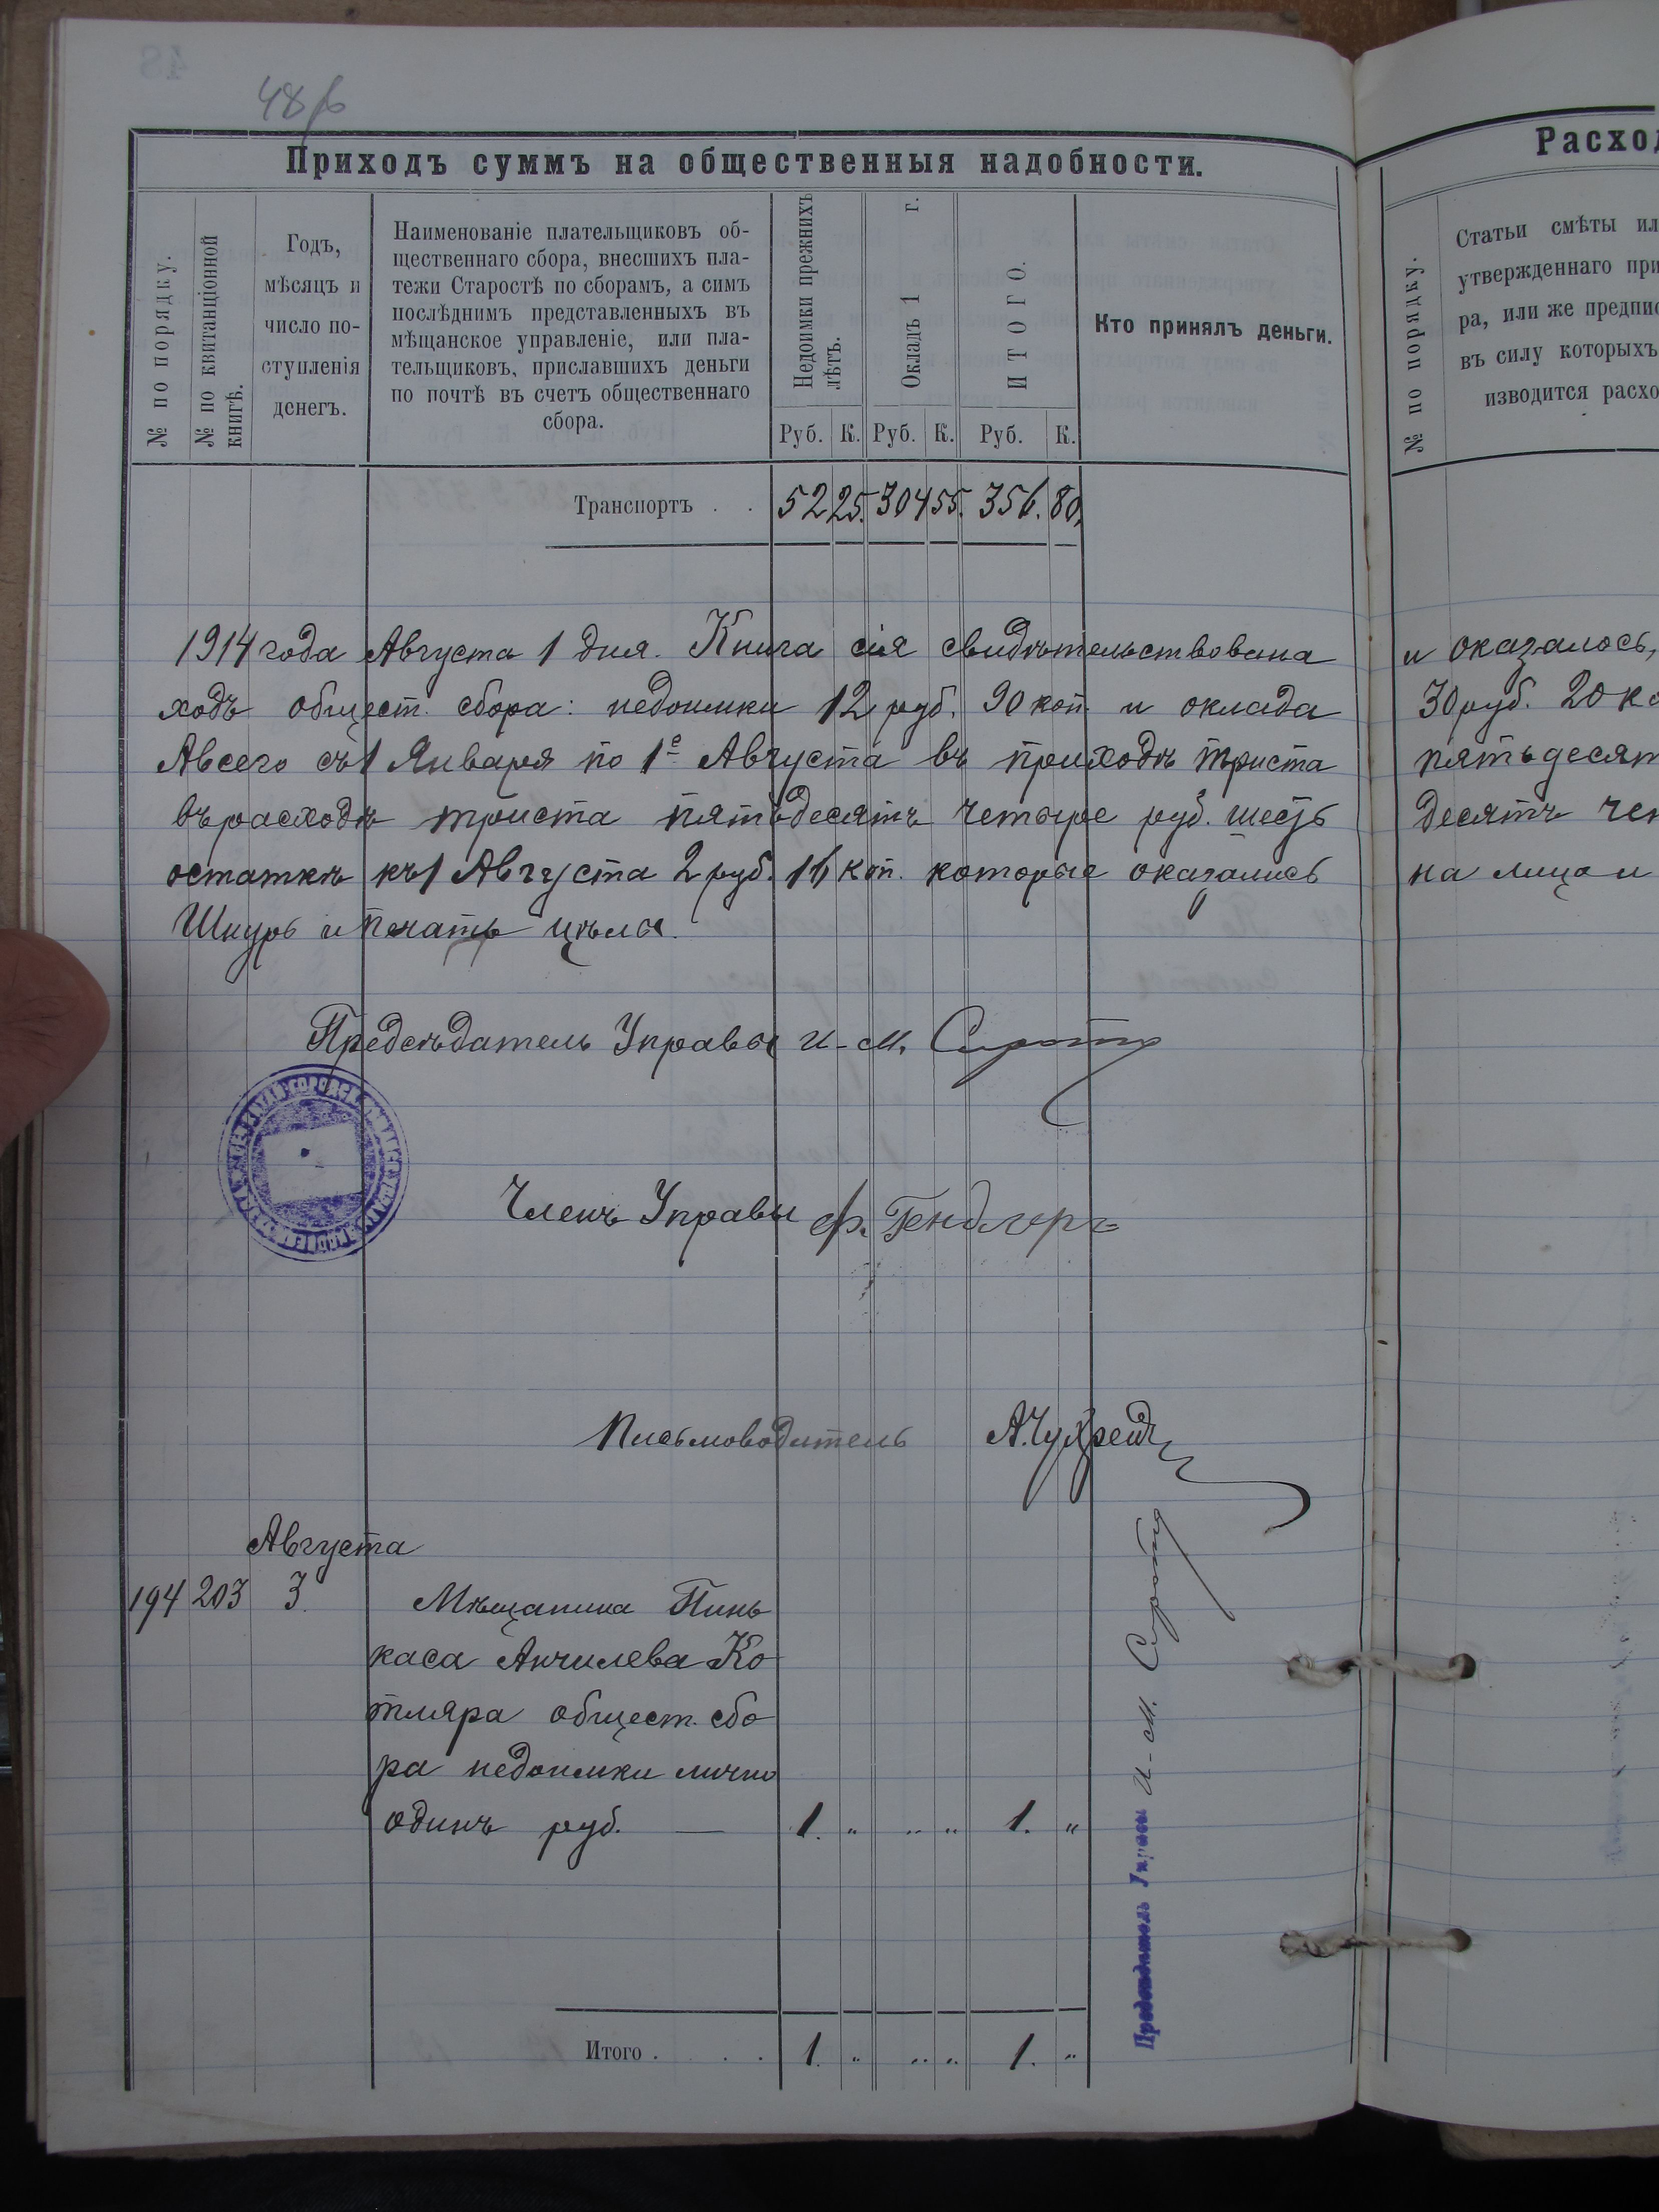 48 об
Приходъ суммъ на общественныя надобности.
№ по порядку.
№ по квитанціонной
книгѣ.
Годъ,
мѣсяцъ и
число по-
ступленія
денегъ.
Наименованіе плательщиковъ об-
щественнаго сбора, внесшихъ пла-
тежи Старостѣ по сборамъ, а симъ
послѣднимъ представленныхъ въ
мѣщанское управленіе, или пла-
тельщиковъ, приславшихъ деньги
по почтѣ въ счетъ общественнаго
сбора.
Недоимки прежнихъ
лѣтъ.
Окладъ 1 г.
ИТОГО.
Кто принялъ деньги.
Руб. К. Руб. К. Руб. К.
Транспортъ . . 52 25. 304 55. 356. 80.
1914 года Августа 1 дня. Книга сія свидѣтельствована
ходъ общест. сбора: недоимки 12 руб. 90 коп. и оклада
А всего съ 1 Января по 1е Августа въ приходѣ триста
въ расходѣ триста пятьдесятъ четыре руб. шесть
остаткѣ къ 1 Августа 2 руб. 16 коп. которые оказались
Шнуръ и печать цѣлы.
Предсѣдатель Управы И-М. Сирота
Членъ Управы Ф. Гендлеръ
Письмоводитель
Августа
194 203 3. Мѣщанина Пинь
каса Анчилева Ко
тляра общест. сбо
ра недоимки лично
одинъ руб. — 1. „ „ „ 1. „
Предсѣдатель Управы И-М. Сирота
Итого . . . . 1. „ „ „ 1. „
Расход
№ по порядку.
Статьи смѣты ил
утвержденнаго при
ра, или же предпис
въ силу которыхъ
изводится расхо
и оказалось,
30 руб. 20 ко
пятьдесят
десятъ чет
на лицо и